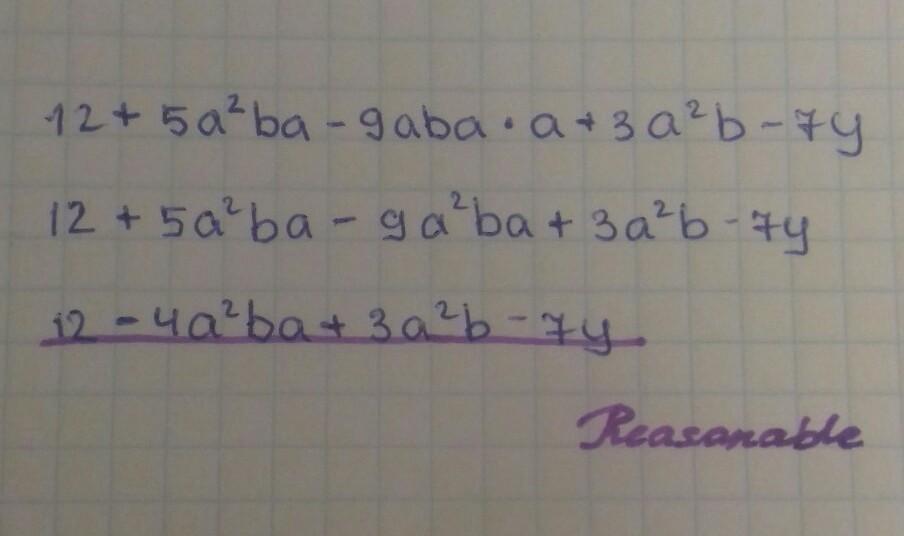 12 + 5a²ba - 9aba · a + 3a²b - 7y
12 + 5a²ba - 9a²ba + 3a²b - 7y
12 - 4a²ba + 3a²b - 7y
Reasanable